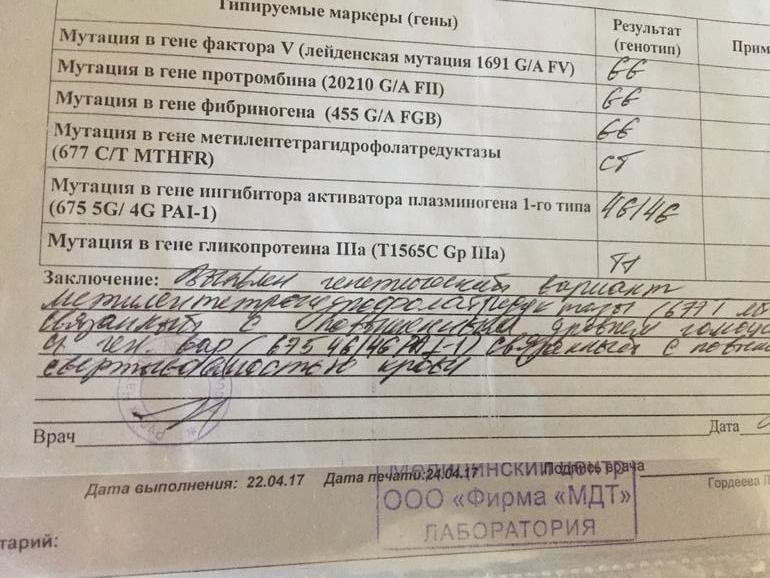 Типируемые маркеры (гены)
Результат
(генотип)
Прим
Мутация в гене фактора V (лейденская мутация 1691 G/A FV)
GG
Мутация в гене протромбина (20210 G/A FII)
GG
Мутация в гене фибриногена (455 G/A FGB)
GG
Мутация в гене метилентетрагидрофолатредуктазы
(677 C/T MTHFR)
СТ
Мутация в гене ингибитора активатора плазминогена 1-го типа
(675 5G/ 4G PAI-1)
4G/4G
Мутация в гене гликопротеина IIIa (T1565C Gp IIIa)
ТТ
Заключение: Выявлен генетический вариант
метилентетрагидрофолатредуктазы (677
связанный с повышенным уровнем гомоци
ген. вар (675 4G/4G PAI-1) связанный с повы
свертываемостью крови
Врач
Дата
Дата выполнения: 22.04.17 Дата печати:24.04.17 Подпись врача
Гордеева Л
Медицинский центр
ООО «Фирма «МДТ»
ЛАБОРАТОРИЯ
тарий: